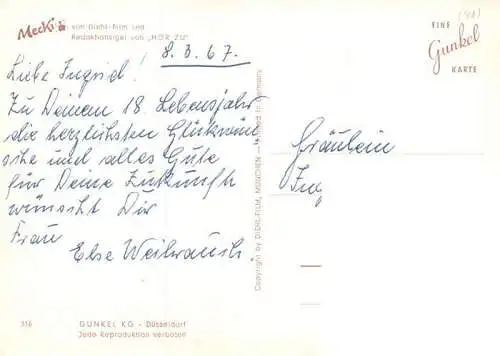 Mecki von Diehl-Film und
Redaktionsigel von „HÖR ZU"
8.3.67.
Liebe Ingrid!
Zu Deinem 18. Lebensjahr
die herzlichsten Glückwün
sche und alles Gute
für Deine Zukunft
wünscht Dir
Frau
Else Weihrauch.
316
GUNKEL KG - Düsseldorf
Jede Reproduktion verboten
Copyright by DIEHL-FILM, MÜNCHEN — Printed in Germany
EINE
Gunkel
KARTE
Fräulein
Ing